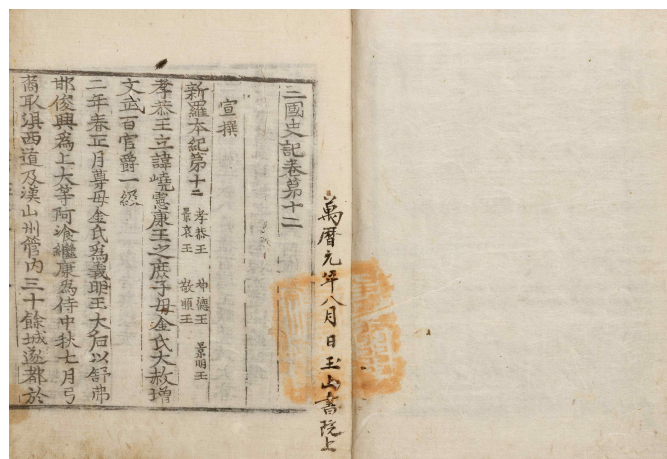 萬曆元年八月日玉山書院上
三國史記卷第十二
宣撰
新羅本紀第十二 孝恭王 神德王 景明王
景哀王 敬順王
孝恭王立諱嶢憲康王之庶子母金氏大赦增
文武百官爵一級
二年春正月尊母金氏爲義明王大后以舒弗
邯俊興爲上大等阿飡繼康爲侍中秋七月弓
裔取浿西道及漢山州管內三十餘城遂都於